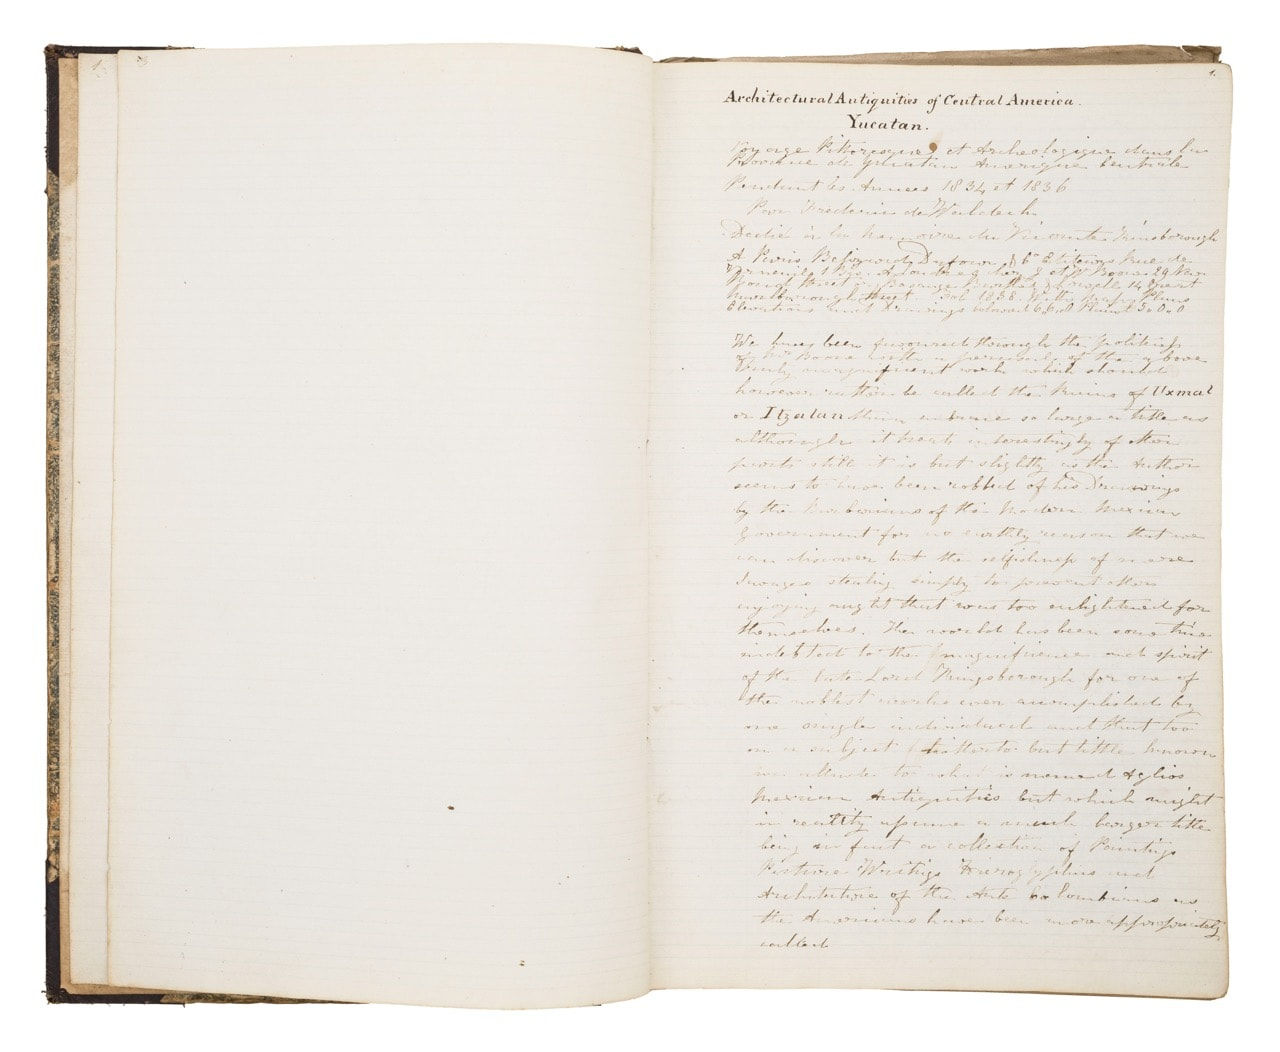 1.
Architectural Antiquities of Central America.
Yucatan.
Voyage Pittoresque et Archeologique dans la
Province de Yucatan Amerique Centrale
Pendant les Annees 1834 et 1836
Par Frederic de Waldeck
Dedié à la memoire du Vicomte Kinsborough
A Paris Bellizard Dufour & Co Editeurs Rue de
Verneuil 1 Bis. A Londres chez J et W Boone 29 New
Bond Street 14 Great
Marlborough Street 1838. With maps Plans
Elevations and Drawings coloured Plain 5.0.0
We have been favoured through the politeness
of Mr Boone with a perusal of the above
truly magnificent work which should
however rather be called the Ruins of Uxmal
or Itzalan than assume so large a title as
although it treats interestingly of other
parts still it is but slightly as the Author
seems to have been robbed of his Drawings
by the Barbarians of the Modern Mexican
Government for no earthly reason that we
can discover but the selfishness of mere
Savages stealing simply to prevent others
enjoying aught that was too enlightened for
themselves. The world has been some time
indebted to the magnificence and spirit
of the late Lord Kingsborough for one of
the noblest works ever accomplished by
one single individual and that too
on a subject hitherto but little known
we allude to what is named Aglios
Mexican Antiquities but which might
in reality assume a much larger title
being in fact a collection of Paintings
Picture Writings Hieroglyphics and
Architecture of the Ante Columbians as
the Americans have been more appropriately
called